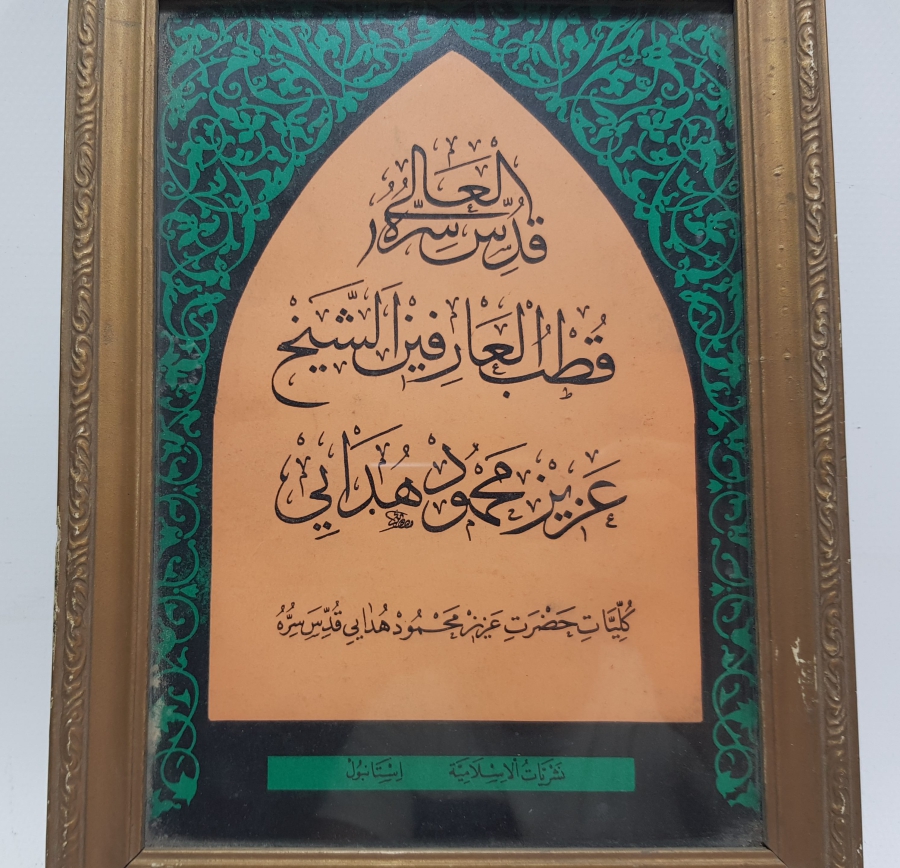 قُدِّسَ سِرُّهُ العَالِي
قُطْبُ العَارِفِينَ الشَّيْخ
عَزِيز مَحْمُودْ هُدَايِي
كُلِّيَّاتِ حَضْرَتِ عَزِيزْ مَحْمُودْ هُدَايِي قُدِّسَ سِرُّهُ
نَشْرِيَاتُ الْإِسْلَامِيَّة اِسْتَانبُولْ